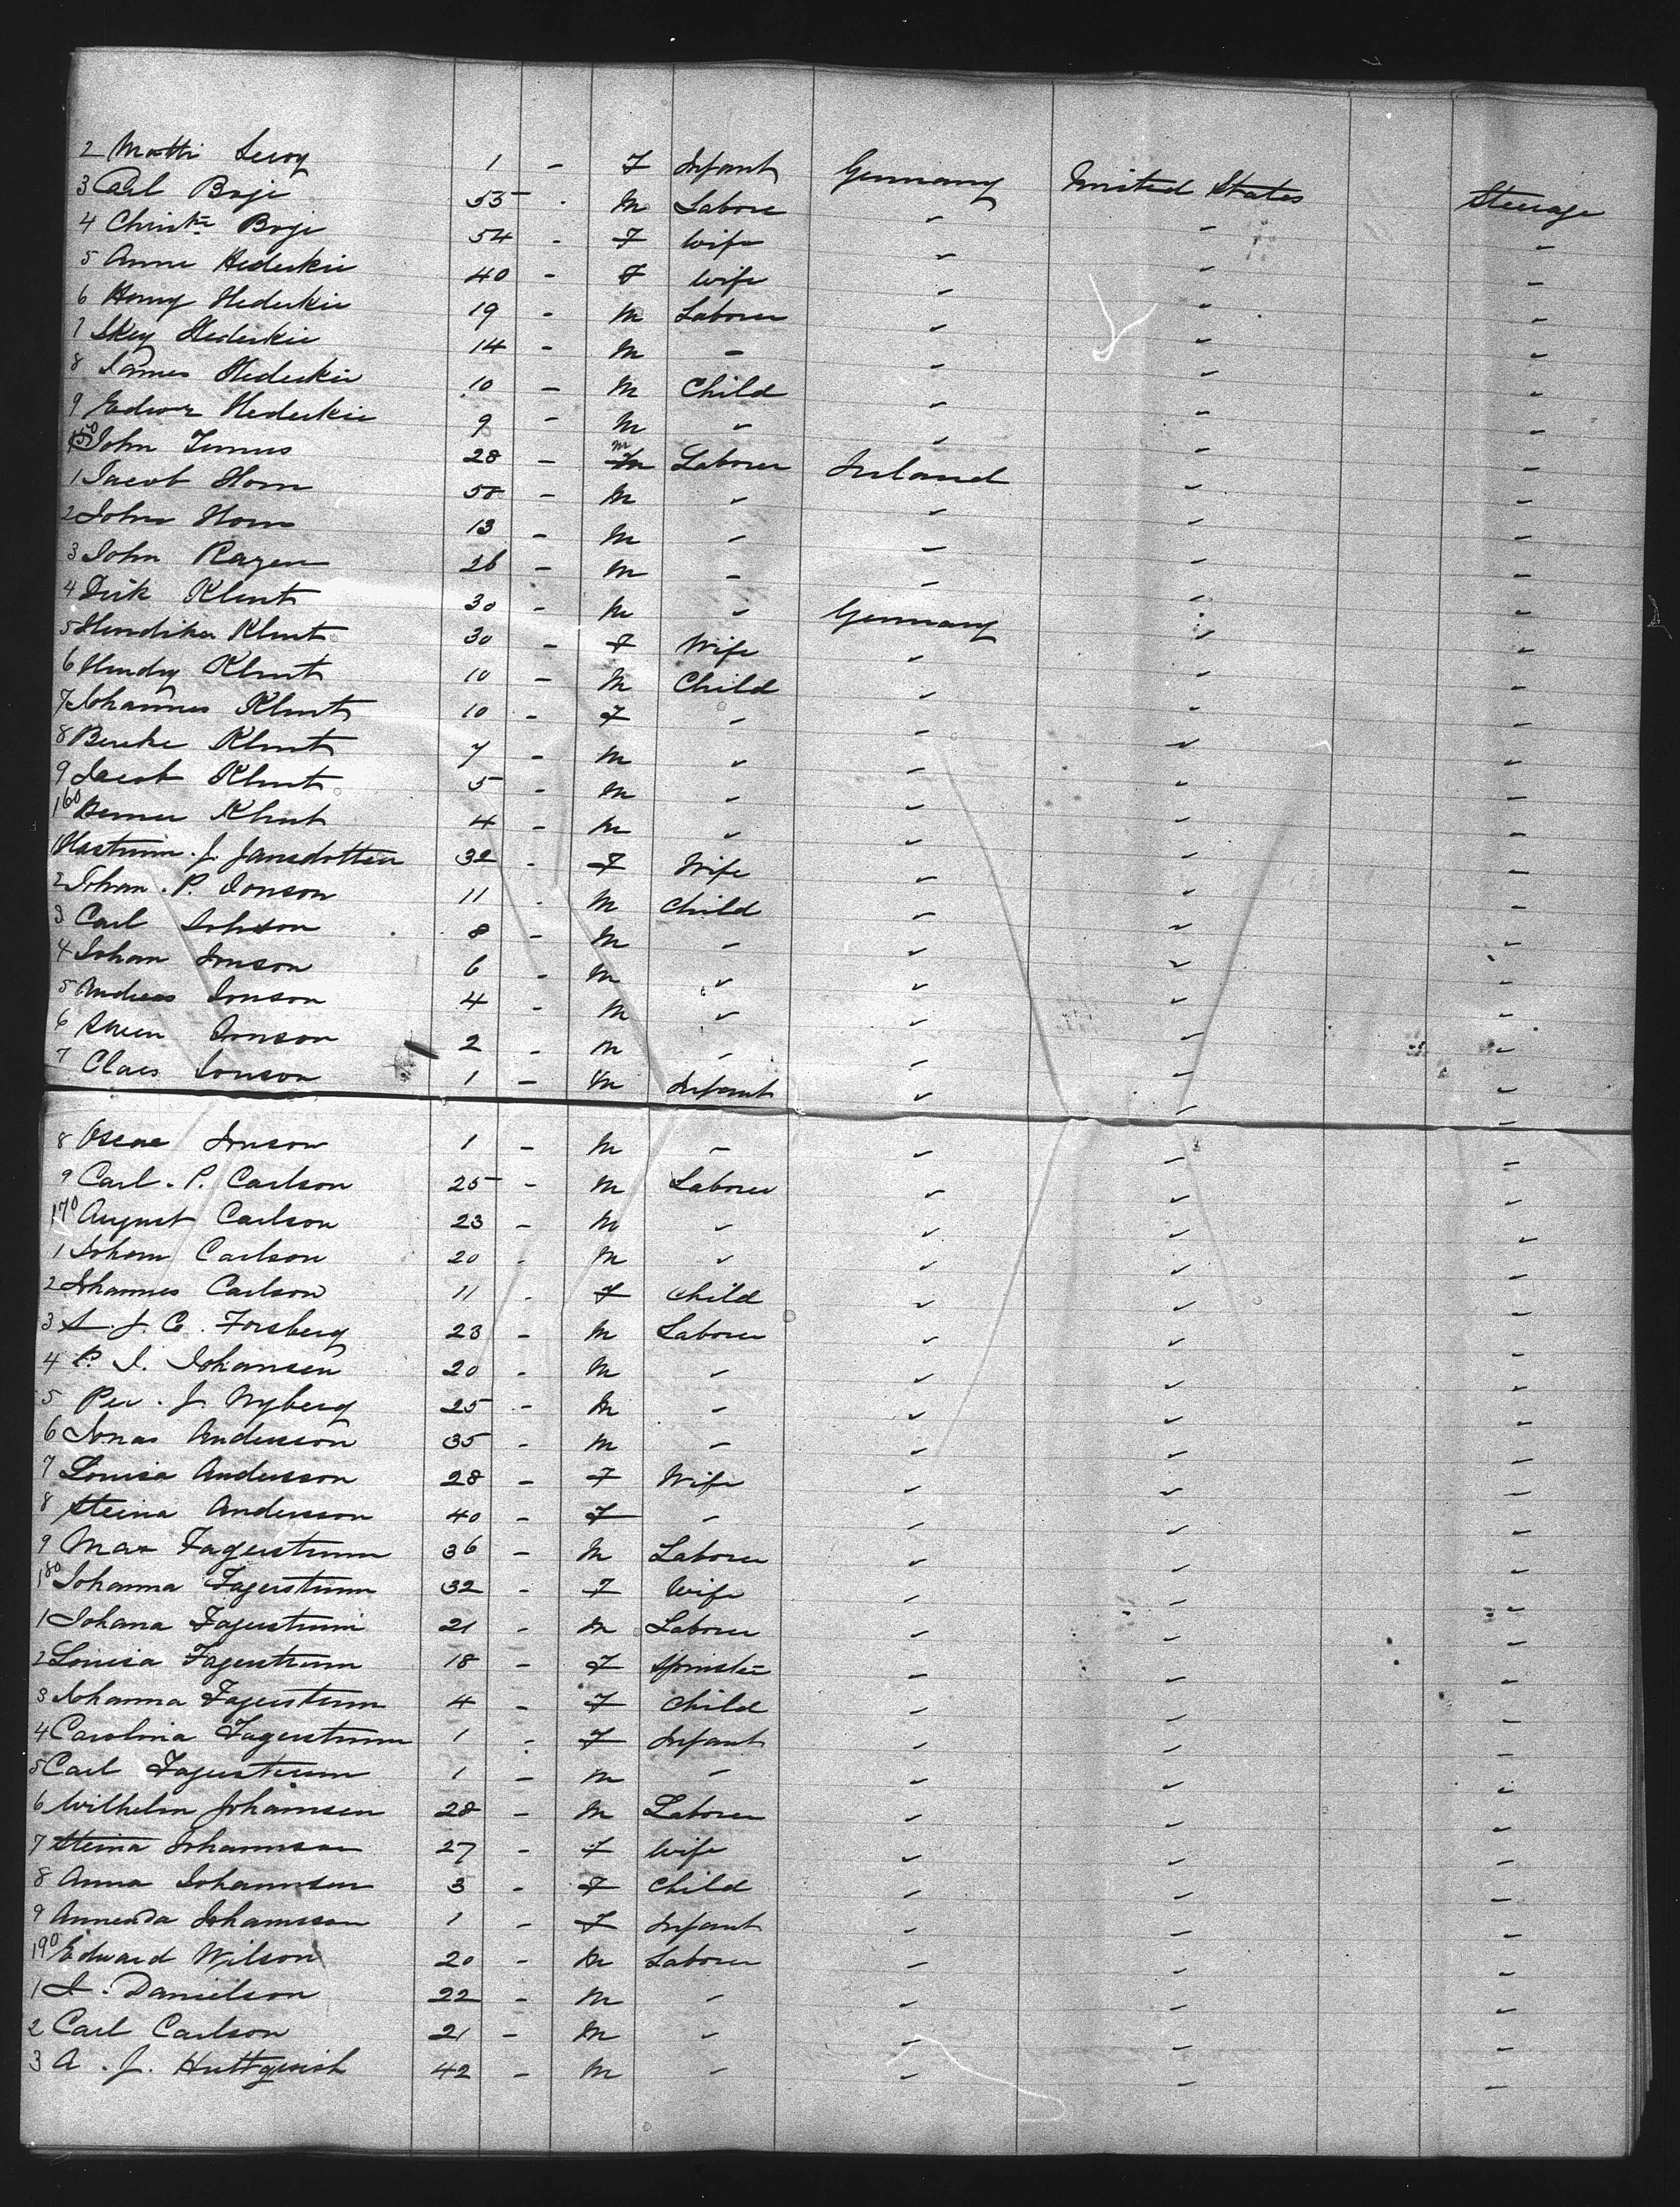 2 Matti Levy 1 - F Infant Germany United States Steerage
3 Carl Boje 55 - M Labore " " "
4 Christe Boje 54 - F Wife " " "
5 Anna Hederkie 40 - F Wife " " "
6 Henry Hederkie 19 - M Laborer " " "
7 Hederkie 14 - M " " " "
8 James Hederkie 10 - M Child " " "
9 Edwr Hederkie 9 - M " " " "
150 John 28 - M Laborer Ireland " "
1 Jacob Horn 58 - M " " " "
2 John Horn 13 - M " " " "
3 John Razen 26 - M " " " "
4 Dirk Klunt 30 - M " Germany " "
5 Hendika Klunt 30 - F Wife " " "
6 Hendry Klunt 10 - M Child " " "
7 Johannes Klunt 10 - F " " " "
8 Klunt 7 - M " " " "
9 Jacob Klunt 5 - M " " " "
160 Klunt 4 - M " " " "
1 J. Jansdotter 32 - F Wife " " "
2 Johan. P. Jonson 11 - M Child " " "
3 Carl Johson 8 - M " " " "
4 Johan Jonson 6 - M " " " "
5 Andreas Jonson 4 - M " " " "
6 Swen Jonson 2 - M " " " "
7 Claes Jonson 1 - M Infant " " "
8 Oscar Jonson 1 - M " " " "
9 Carl. P. Carlson 25 - M Laborer " " "
170 August Carlson 23 - M " " " "
1 Johan Carlson 20 - M " " " "
2 Johannes Carlson 11 - F Child " " "
3 S. J. C. Forsberg 23 - M Laborer " " "
4 P. J. Johansen 20 - M " " " "
5 Per. J. Nyberg 25 - M " " " "
6 Jonas Andersson 35 - M " " " "
7 Louisa Andersson 28 - F Wife " " "
8 Steina Andersson 40 - F " " " "
9 Max Fagerstrum 36 - M Laborer " " "
180 Johanna Fagerstrum 32 - F Wife " " "
1 Johana Fagerstrum 21 - M Laborer " " "
2 Louisa Fagerstrum 18 - F Spinster " " "
3 Johanna Fagerstrum 4 - F Child " " "
4 Carolina Fagerstrum 1 - F Infant " " "
5 Carl Fagerstrum 1 - M " " " "
6 Wilhelm Johannsen 28 - M Laborer " " "
7 Steina Johannsen 27 - F Wife " " "
8 Anna Johannsen 3 - F Child " " "
9 Amenda Johannsen 1 - F Infant " " "
190 Edward Wilson 20 - M Laborer " " "
1 J. Danielson 22 - M " " " "
2 Carl Carlson 21 - M " " " "
3 A. J. Hultquish 42 - M " " " "